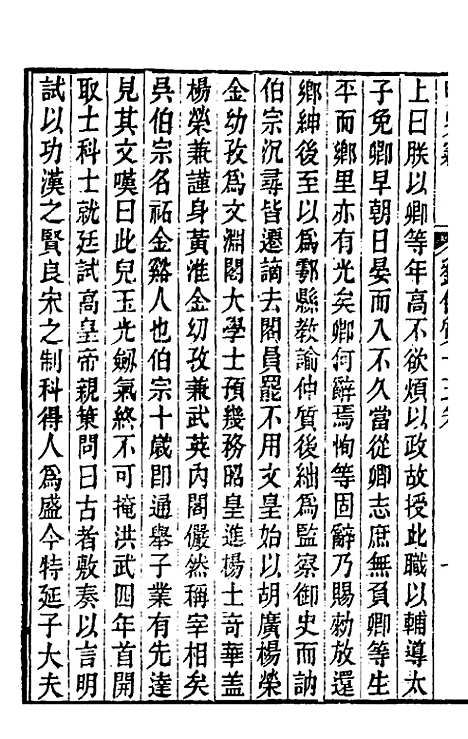 上曰朕以卿等年高不欲煩以政故授此職以輔導太
子免卿早朝日晏而入不久當從卿志庶無負卿等生
平而鄉里亦有光矣卿何辭焉恂等固辭乃賜勑放還
鄉紳後至以為鄠縣教諭仲質後絀為監察御史而訥
伯宗沉尋皆遷謫去閣員罷不用文皇始以胡廣楊榮
金幼孜為文淵閣大學士預幾務昭皇進楊士竒華蓋
楊榮兼謹身黃淮金幼孜兼武英內閣儼然稱宰相矣
吳伯宗名祏金谿人也伯宗十歲即通舉子業有先達
見其文嘆曰此兒玉光劔氣終不可掩洪武四年首開
取士科士就廷試高皇帝親策問曰古者敷奏以言明
試以功漢之賢良宋之制科得人為盛今特延子大夫